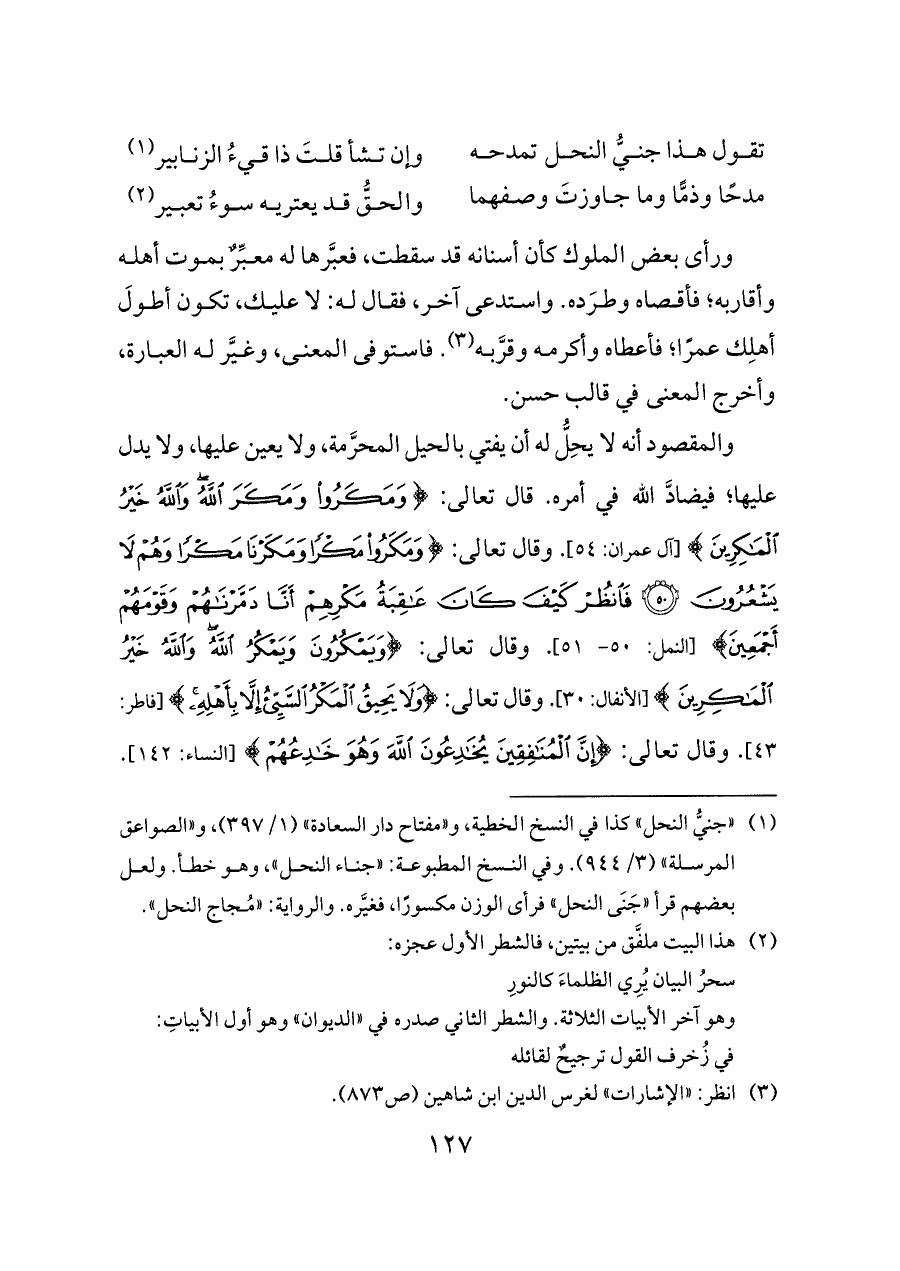 تقول هذا جنيُّ النحل تمدحه وإن تشأ قلتَ ذا قيءُ الزنابير(١)
مدحًا وذمًّا وما جاوزتَ وصفهما والحقُّ قد يعتريه سوءُ تعبير(٢)
ورأى بعض الملوك كأن أسنانه قد سقطت، فعبَّرها له معبِّرٌ بموت أهله
وأقاربه؛ فأقصاه وطرَده. واستدعى آخر، فقال له: لا عليك، تكون أطولَ
أهلِك عمرًا؛ فأعطاه وأكرمه وقرَّبه(٣). فاستوفى المعنى، وغيَّر له العبارة،
وأخرج المعنى في قالب حسن.
والمقصود أنه لا يحِلُّ له أن يفتي بالحيل المحرَّمة، ولا يعين عليها، ولا يدل
عليها؛ فيضادَّ الله في أمره. قال تعالى: ﴿وَمَكَرُواْ وَمَكَرَ ٱللَّهُۖ وَٱللَّهُ خَيْرُ
ٱلْمَٰكِرِينَ﴾ [آل عمران: ٥٤]. وقال تعالى: ﴿وَمَكَرُواْ مَكْرًا وَمَكَرْنَا مَكْرًا وَهُمْ لَا
يَشْعُرُونَ ۝٥٠ فَٱنظُرْ كَيْفَ كَانَ عَٰقِبَةُ مَكْرِهِمْ أَنَّا دَمَّرْنَٰهُمْ وَقَوْمَهُمْ
أَجْمَعِينَ﴾ [النمل: ٥٠- ٥١]. وقال تعالى: ﴿وَيَمْكُرُونَ وَيَمْكُرُ ٱللَّهُۖ وَٱللَّهُ خَيْرُ
ٱلْمَٰكِرِينَ﴾ [الأنفال: ٣٠]. وقال تعالى: ﴿وَلَا يَحِيقُ ٱلْمَكْرُ ٱلسَّيِّئُ إِلَّا بِأَهْلِهِۦ﴾ [فاطر:
٤٣]. وقال تعالى: ﴿إِنَّ ٱلْمُنَٰفِقِينَ يُخَٰدِعُونَ ٱللَّهَ وَهُوَ خَٰدِعُهُمْ﴾ [النساء: ١٤٢].
(١) «جنيُّ النحل» كذا في النسخ الخطية، و«مفتاح دار السعادة» (١/ ٣٩٧)، و«الصواعق
المرسلة» (٣/ ٩٤٤). وفي النسخ المطبوعة: «جناء النحل»، وهو خطأ. ولعل
بعضهم قرأ «جَنَى النحل» فرأى الوزن مكسورًا، فغيَّره. والرواية: «مُجاج النحل».
(٢) هذا البيت ملفَّق من بيتين، فالشطر الأول عجزه:
سحرُ البيان يُرِي الظلماءَ كالنورِ
وهو آخر الأبيات الثلاثة. والشطر الثاني صدره في «الديوان» وهو أول الأبياتِ:
في زُخرف القول ترجيحٌ لقائله
(٣) انظر: «الإشارات» لغرس الدين ابن شاهين (ص٨٧٣).
١٢٧